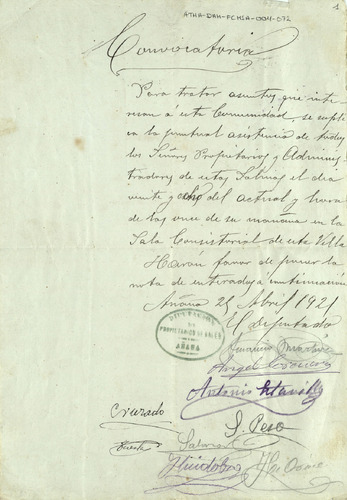 ATHA-DAH-FCMSA-0011-072
1
Convocatoria
Para tratar asuntos que interesan á esta Comunidad, se suplica la puntual asistencia de todos
los Señores Propietarios y Administradores de estas Salinas el dia
veinte y ocho del actual y hora
de las once de su mañana en la
Sala Consistorial de esta Villa
Harán favor de poner la
nota de enterados a continuación
Añana 25 Abril 1921
El Diputado
DIPUTACION
DE
PROPIETARIOS DE SALES
AÑANA
Angel
Antonio
Cruzado
S. Peso